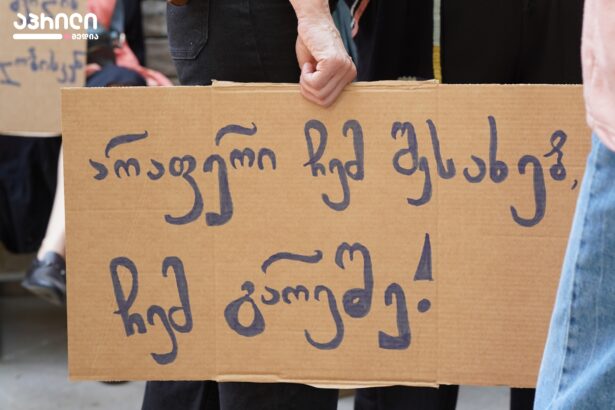 აპრილი
მედია
არაფერი ჩემ შესახებ,
ჩემ გარეშე!